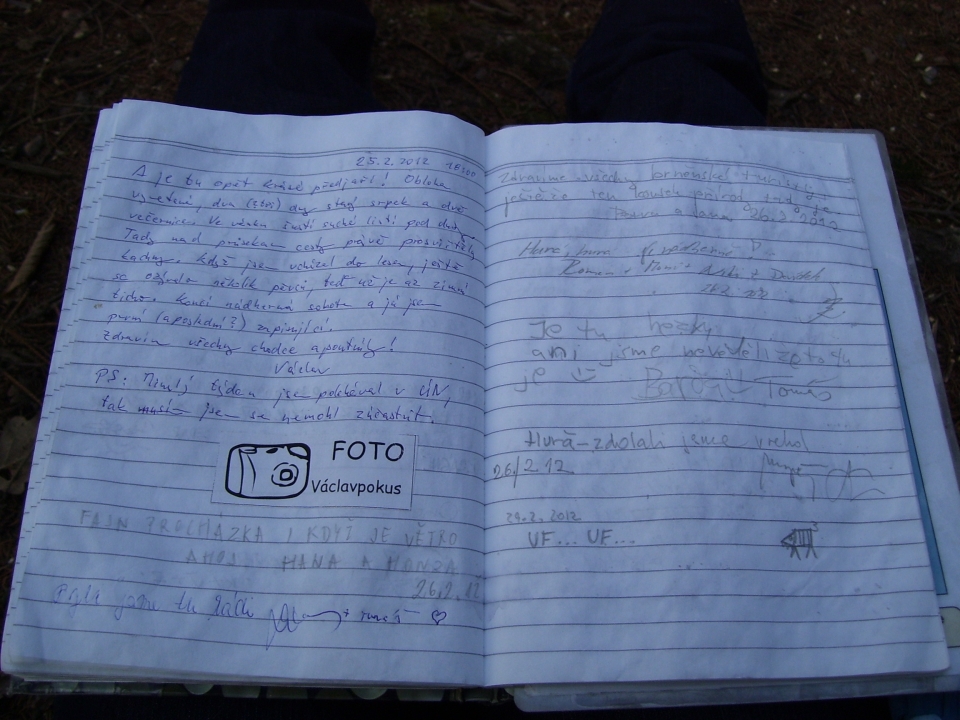 25.2.2012
A je tu opět krásné předjaří! Obloha
vymetená, dva (stří) dny starý srpek a dvě
večernice. Ve vánku šustí suché listí pod duby.
Tady nad průsekem cesty právě prosvištěly
kachny. Když jsem vcházel do lesa, ještě
se ozývalo několik pěvců, teď už je až zimní
ticho. Končí nádherná sobota a já jsem
první (a poslední?) zapisující.
Zdravím všechny chodce a poutníky!
Václav
PS: Minulý týden jsem pobýval v ÚN,
tak jsem se nemohl zúčastnit.
FOTO
Václavpokus
FAJN PROCHÁZKA I KDYŽ JE VĚTRO
AHOJ HANA A HONZA
26.2.12
Byli jsme tu rádi
Zdravíme všechny brněnské turisty
ještěže ten kousek přírody tady je
a Jana 26.2.2012
Hurá, hurá
Roman +
Je tu hezky
ani jsme nevěděli co to tu
je Tomáš
Hurá - zdolali jsme vrchol
26/2 12
29.2.2012
UF... UF...